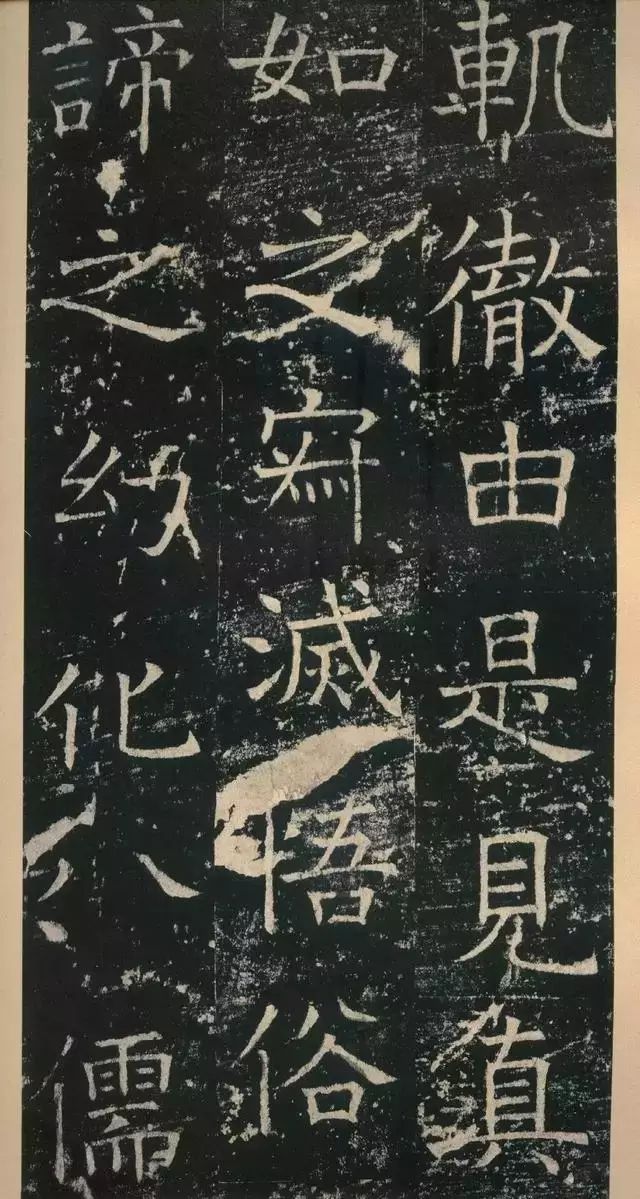 軌徹由是見真
如之寂滅悟俗
諦之化儒